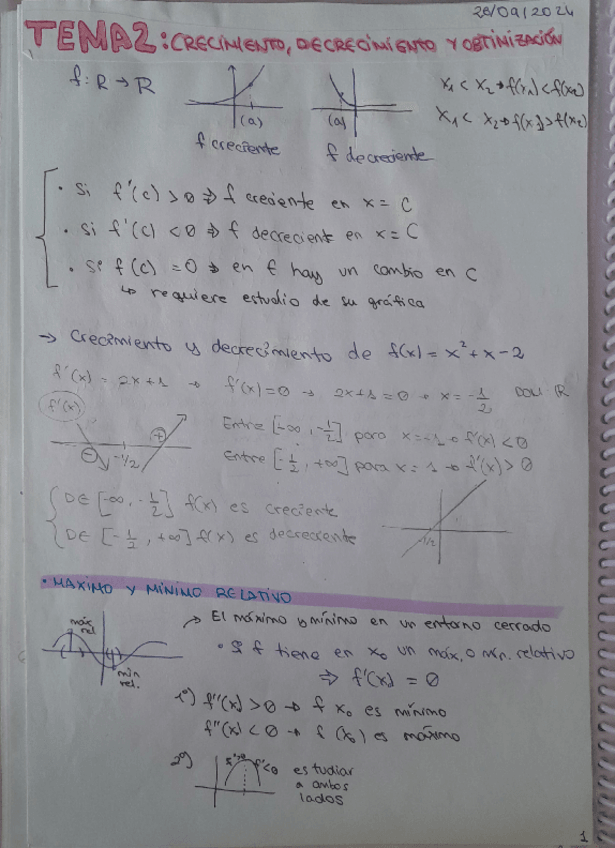 26/09/2024
TEMA 2: CRECIMIENTO, DECRECIMIENTO Y OBTINIZACIÓN
f: R → R
(a) (a)
x₁ < x₂ → f(x₁) < f(x₂)
x₁ < x₂ → f(x₁) > f(x₂)
f creciente f decreciente
• Si f'(c) > 0 ⇒ f creciente en x = C
• Si f'(c) < 0 ⇒ f decrecient en x = C
• Si f(c) = 0 → en f hay un cambio en C
↳ requiere estudio de su gráfica
→ Crecimiento y decrecimiento de f(x) = x² + x - 2
f'(x) = 2x + 1 → f'(x) = 0 → 2x + 1 = 0 → x = -1/2 R
f'(x)
Entre [-∞, -1/2] para x = -1 → f'(x) < 0
⊖ -1/2 ⊕
Entre [-1/2, +∞] para x = 1 → f'(x) > 0
DE [-∞, -1/2] f(x) es creciente
DE [-1/2, +∞] f(x) es decreciente
-1/2
• MAXIMO Y MÍNIMO RELATIVO
máx rel.
mín rel.
→ El máximo y mínimo en un entorno cerrado
• Si f tiene en x₀ un máx. o mín. relativo
⇒ f'(x) = 0
1º) f''(x) > 0 → f x₀ es mínimo
f''(x) < 0 → f (x₀) es máximo
2º) f'>0 f'<0 estudiar
a ambos
lados
1